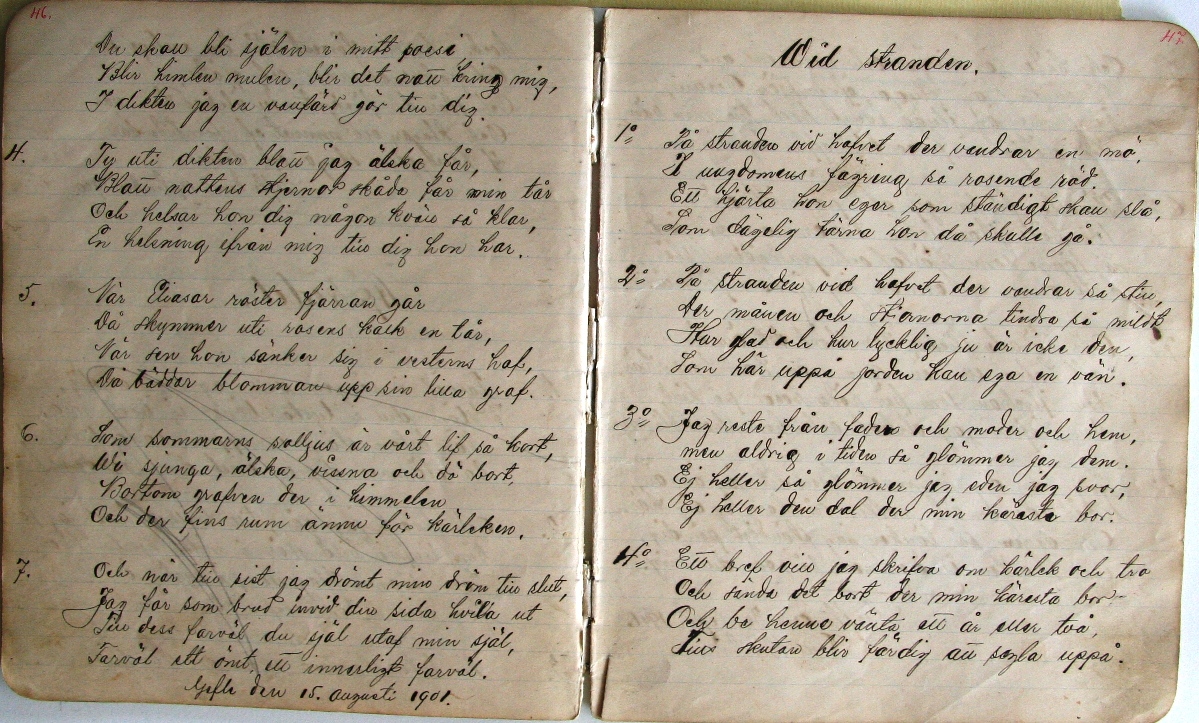 46.
Du skall bli själen i mitt poesi
Blir himlen mulen, blir det natt kring mig,
I dikten jag en vallfärd gör till dig.
4. Ty uti dikten blott jag älska får,
Blott nattens stjernor skåda får min tår
Och helsar hon dig någon kväll så klar,
En helsning ifrån mig till dig hon har.
5. När Eliasar röster fjärran går
Då skymmer uti rosens kalk en tår,
När sen hon sänker sig i vesterns haf,
Då bäddar blomman upp sin lilla graf.
6. Som sommarns solljus är vårt lif så kort,
Wi sjunga, älska, vissna och dö bort,
Bortom grafven der i himmelen
Och der fins rum ännu för kärleken.
7. Och när till sist jag drömt min dröm till slut,
Jag får som brud invid din sida hvila ut
Till dess farväl du själ utaf min själ,
Farväl ett ömt, ett innerligt farväl.
Gefle den 15. augusti 1901.
47.
Wid stranden.
1º På stranden vid hafvet der vandrar en mö,
I ungdomens fägring så rosende röd.
Ett hjärta hon eger som ständigt skall slå,
Som dägelig tärna hon då skulle gå.
2º På stranden vid hafvet der vandrar så still,
Der månen och stjernorna tindra så mildt
Hur glad och hur lycklig ju är icke den,
Som här uppå jorden kan ega en vän.
3º Jag reste från fader och moder och hem,
men aldrig i tiden så glömmer jag dem.
Ej heller så glömmer jag eden jag svor,
Ej heller den dal der min käresta bor.
4º Ett bref vill jag skrifva om kärlek och tro
Och sända det bort der min käresta bor
Och be henne vänta ett år eller två,
Tills skutan blir färdig att segla uppå.